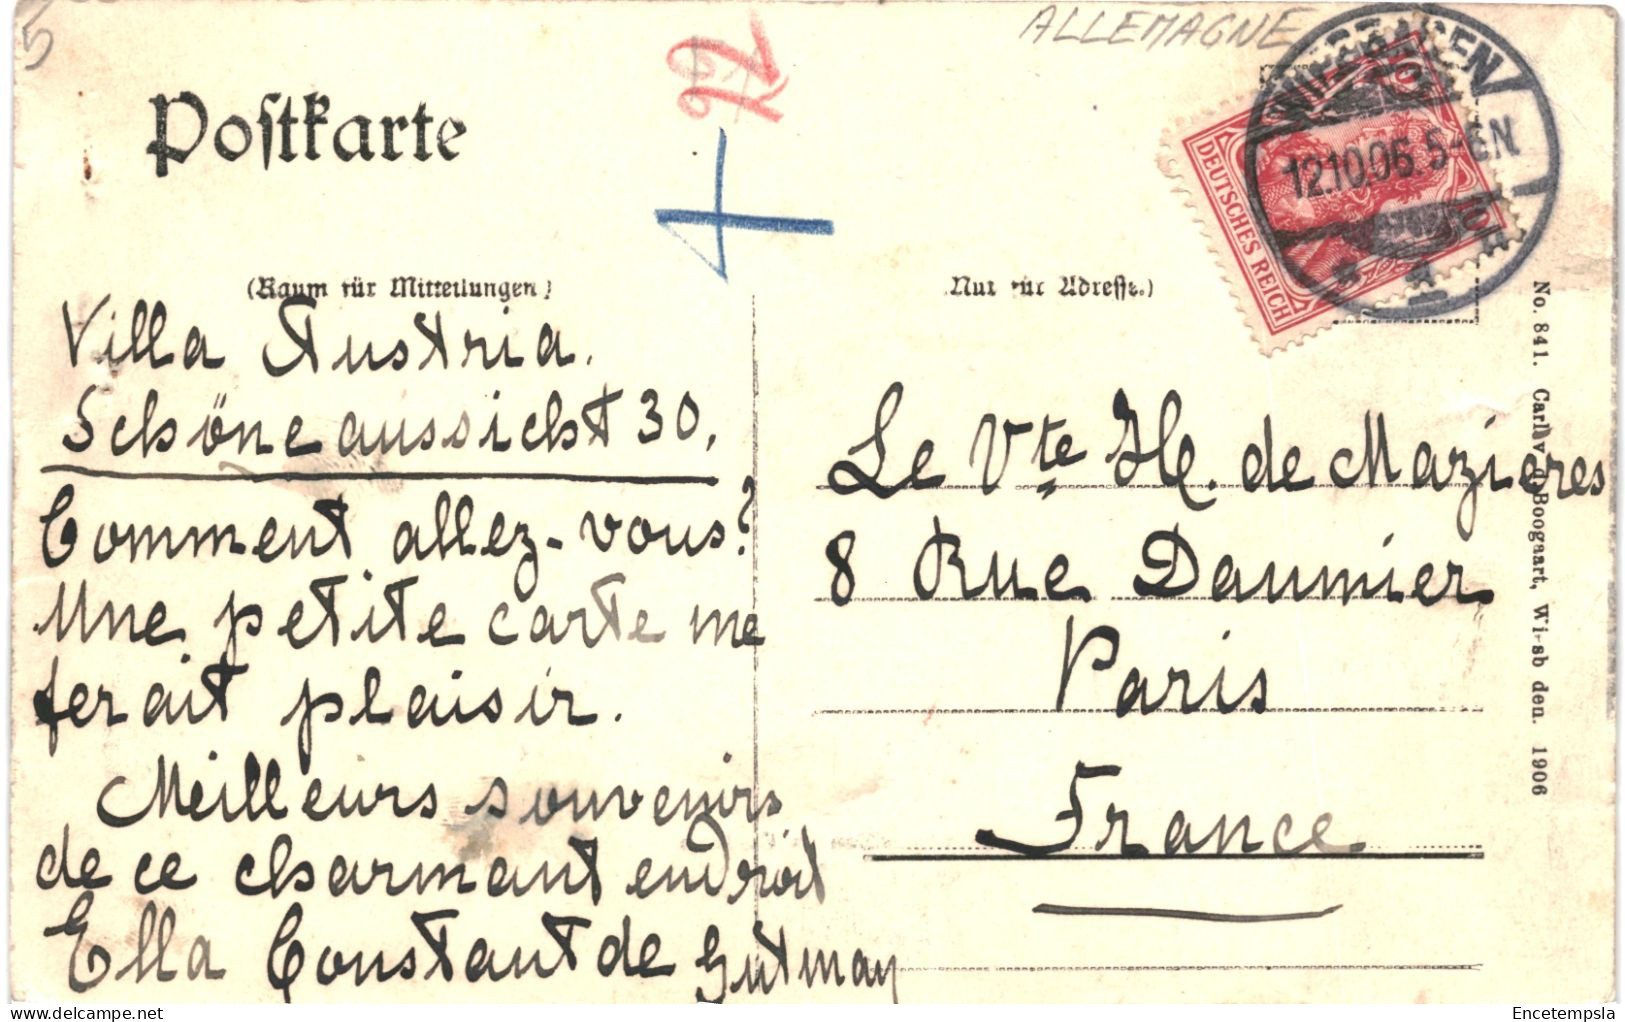 5
ALLEMAGNE
Postkarte
WIESBADEN
12.10.06. 5-6N.
DEUTSCHES REICH
10
10
(Raum für Mitteilungen)
Nur für Adresse.)
Villa Austria.
Schöne aussicht 30.
Comment allez-vous?
Une petite carte me
ferait plaisir.
Meilleurs souvenirs
de ce charmant endroit
Ella Constant de
Le Vte H. de Mazieres
8 Rue Daumier
Paris
France
No. 841. Carl v. d. Boogaart, Wiesbaden. 1906
delcampe.net
Encetempsla